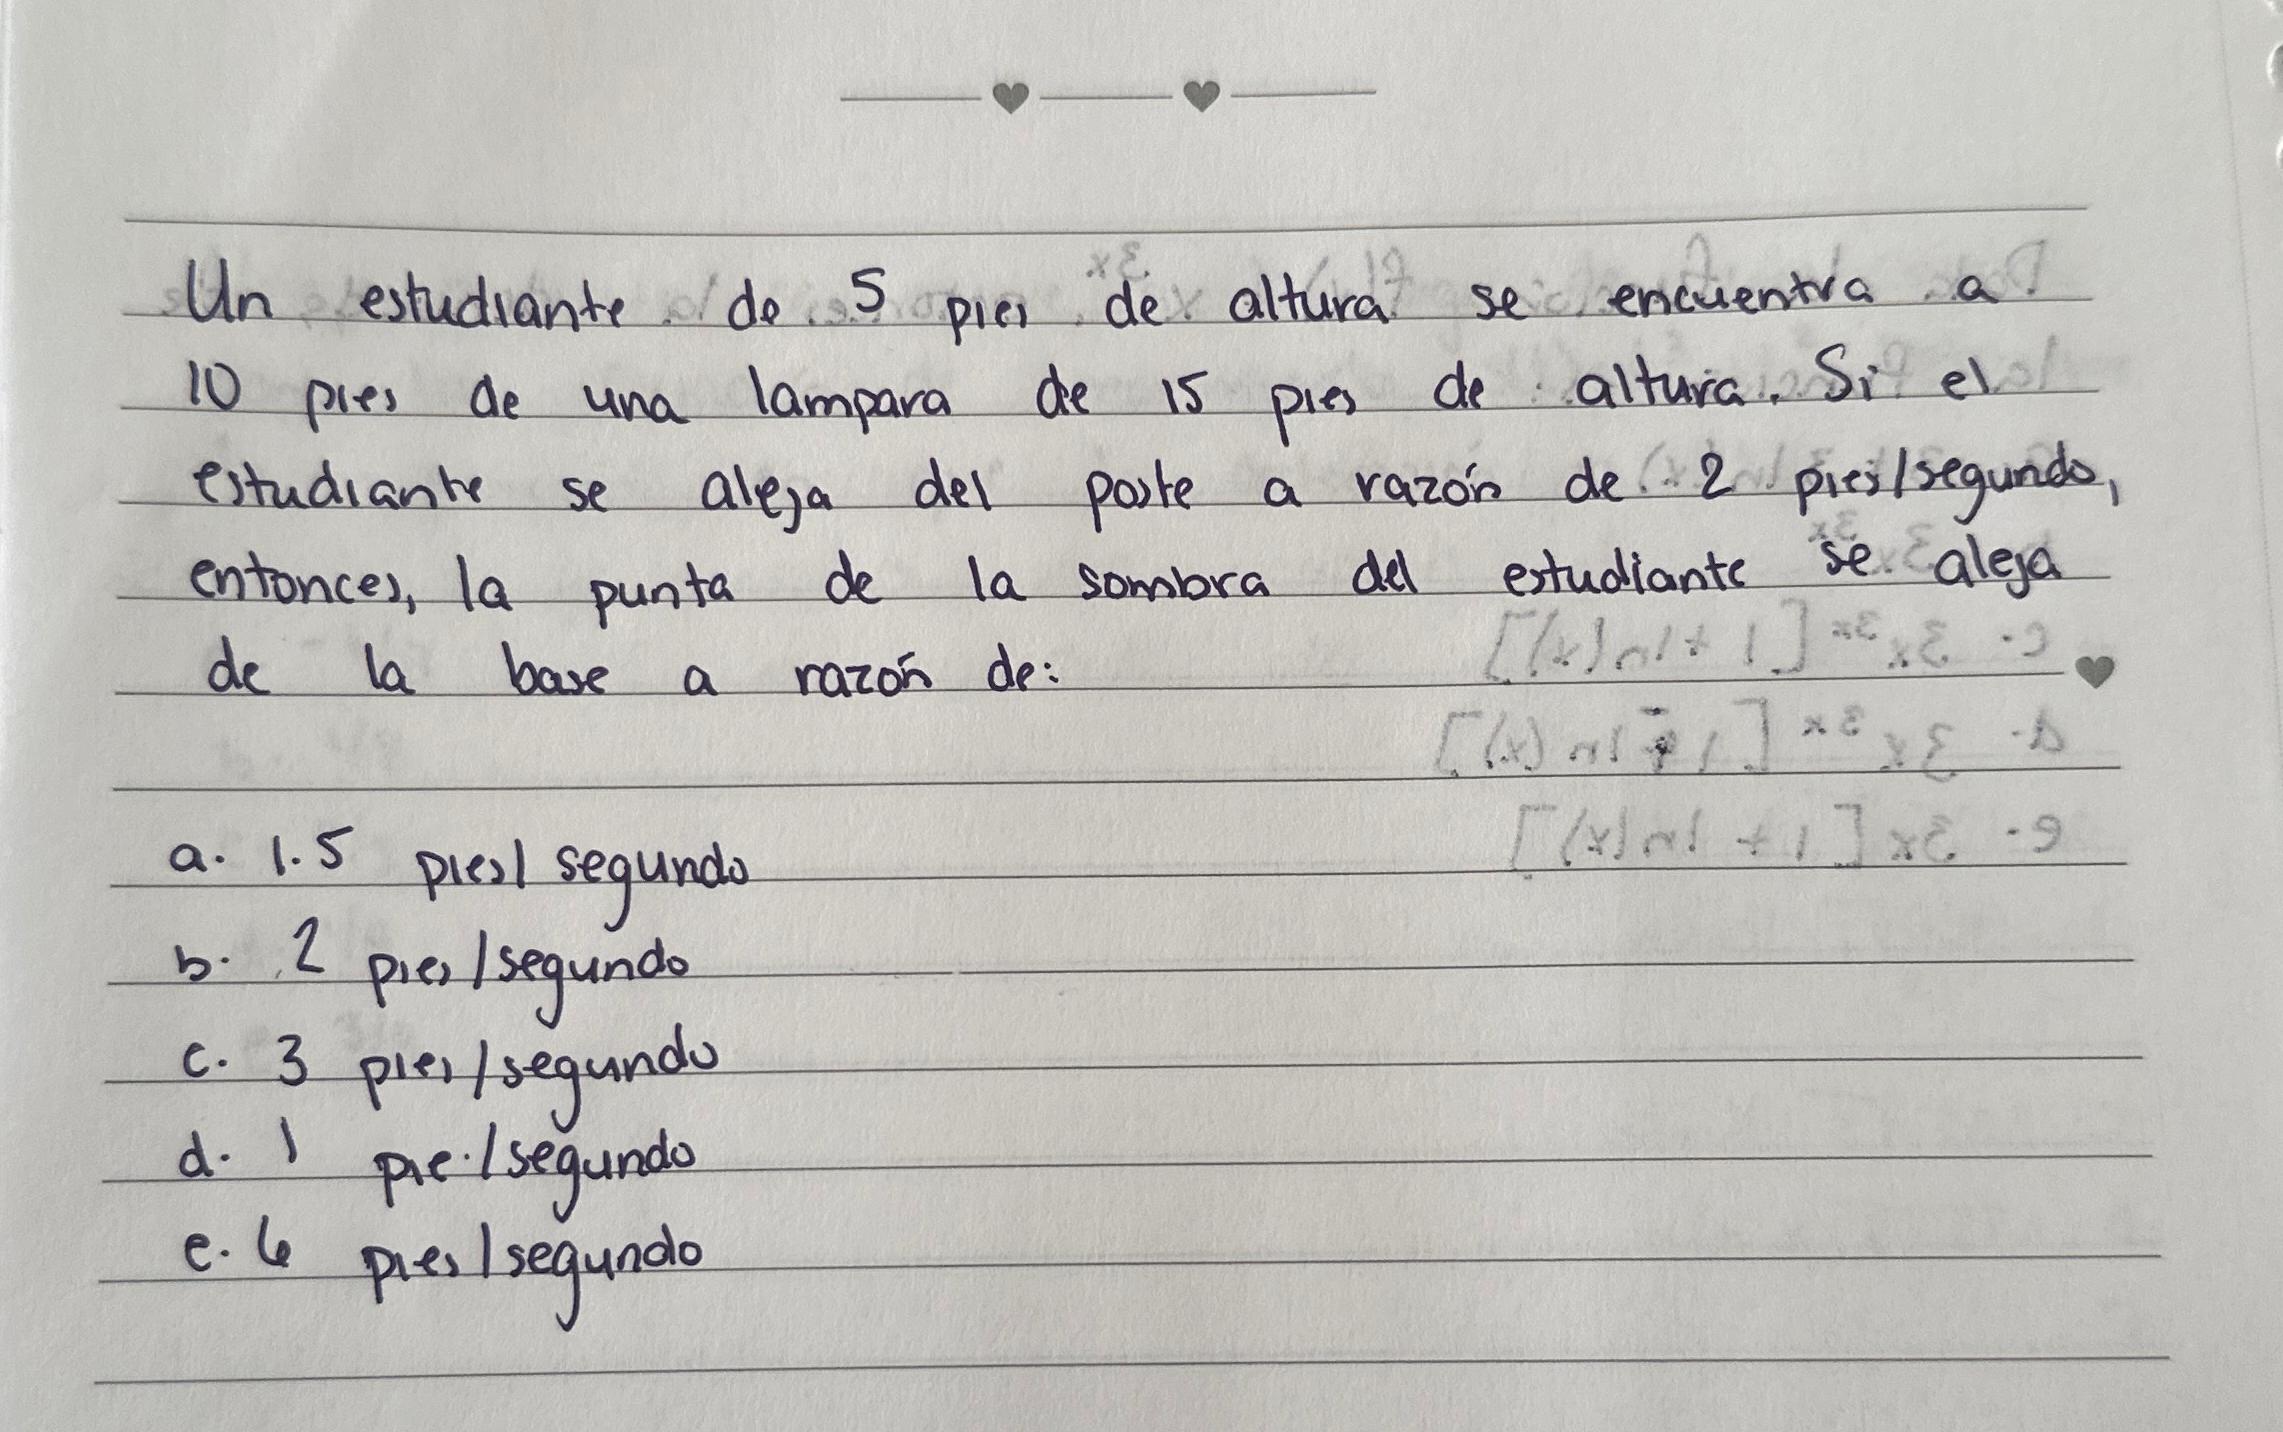 Un estudiante de 5 pies de altura se encuentra a
10 pies de una lampara de 15 pies de altura. Si el
estudiante se aleja del poste a razón de 2 pies/segundo,
entonces, la punta de la sombra del estudiante se aleja
de la base a razón de:
a. 1.5 pies/segundo
b. 2 pies/segundo
c. 3 pies/segundo
d. 1 pie/segundo
e. 6 pies/segundo